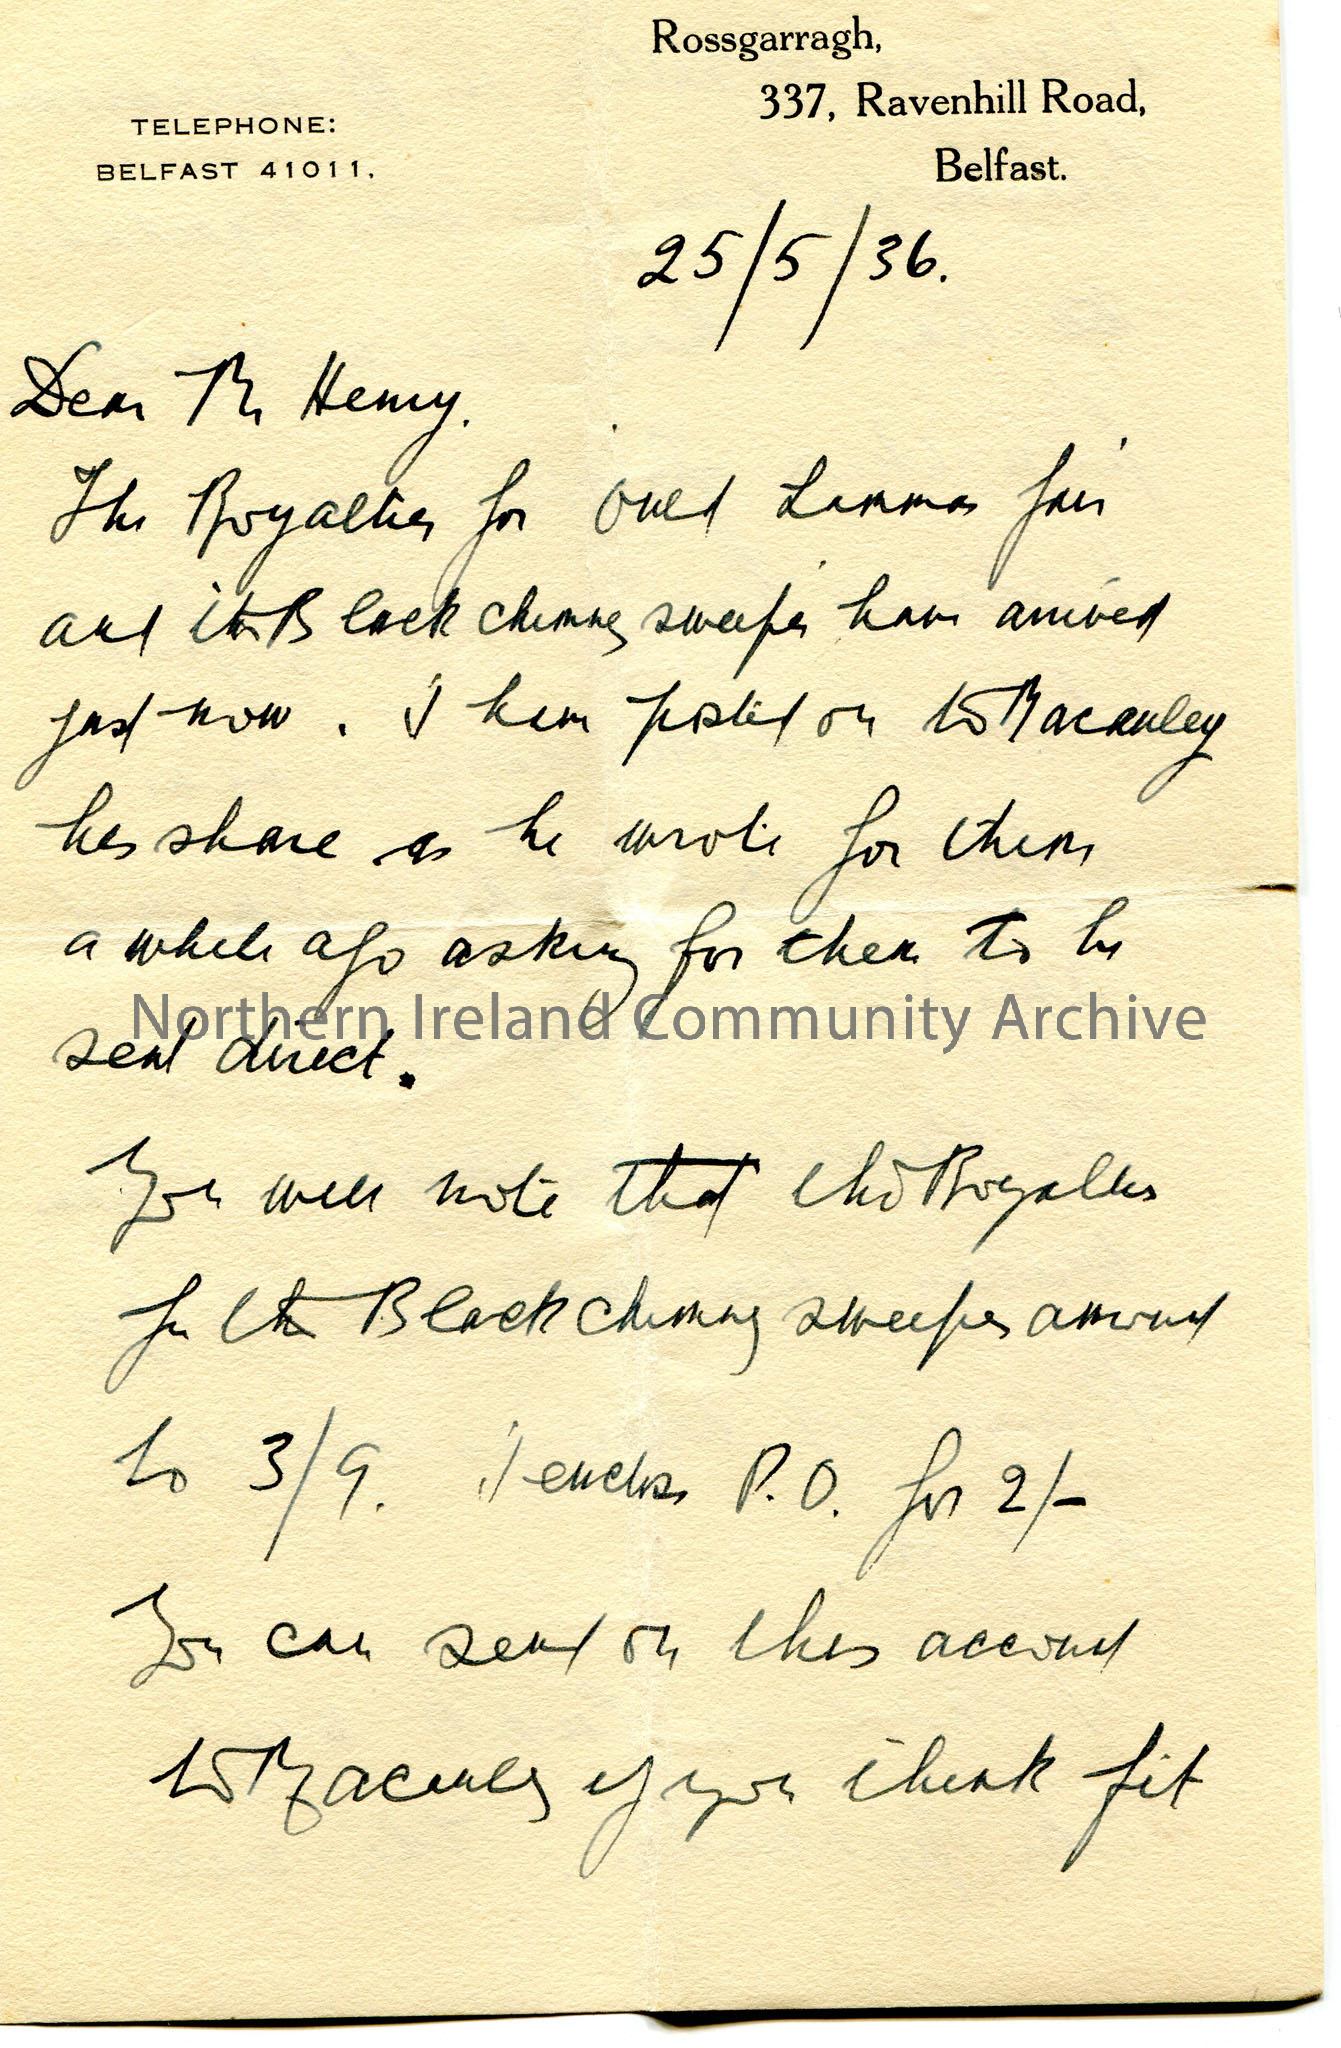 Rossgarragh,
337, Ravenhill Road,
Belfast.
TELEPHONE:
BELFAST 41011.
25/5/36.
Dear Mr Henry.
The Royalties for Ould Lammas fair
and the Black chimney sweeper have arrived
just now. I have posted on to Macauley
his share as he wrote for them
a while ago asking for them to be
sent direct.
Northern Ireland Community Archive
You will note that the Royalties
for the Black chimney sweeper amount
to 3/9. I enclose P.O. for 2/-
You can send on this account
to Macauley if you think fit